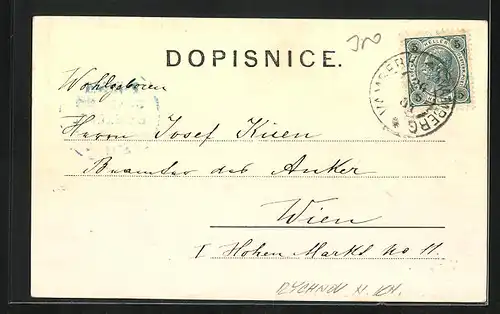 DOPISNICE.
5 HELLER 5
VAMBERK
Wohlgeboren
Herrn Josef Kuen
Beamter des Anker
Wien
I Hohen Markt No 11.
RYCHNOV N. KN.